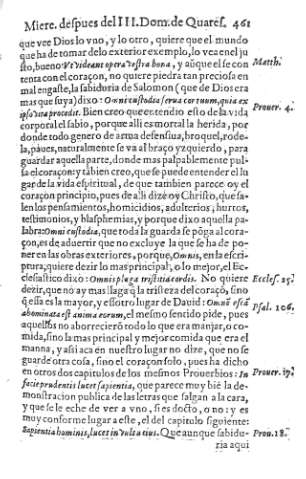 Mierc. despues del III. Dom. de Quares. 461
que vee Dios lo vno, y lo otro, quiere que el mundo
que ha de tomar de lo exterior exemplo, lo vea en el ju
sto, bueno Vt videant opera vestra bona, y aũque el se con Matth.
tenta con el coraçon, no quiere piedra tan preciosa en
mal engaste, la sabiduria de Salomon (que de Dios era
mas que suya) dixo: Omni custodia serua cor tuum, quia ex Prouer. 4.
ipso vita procedit. Bien creo que entendio esto de la vida
corporal el sabio, porque alli es mortal la herida, por
donde todo genero de arma defensiua, broquel, rode-
la, paues, naturalmente se va al braço yzquierdo, para
guardar aquella parte, donde mas palpablemente pul-
sa el coraçon: y tãbien creo, que se puede entender el lu
gar de la vida espiritual, de que tambien parece oy el
coraçon principio, pues de alli dize oy Christo, que sa-
len los pensamientos, homicidios, adulterios, hurros,
testimonios, y blasphemias, y porque dixo aquella pa-
labra: Omni custodia, que toda la guarda se põga al cora-
çon, es de aduertir que no excluye la que se ha de po-
ner en las obras exteriores, porque, Omnis, en la escri-
ptura, quiere dezir lo mas principal, o lo mejor, el Ec-
clesiastico dixo: Omnis plaga tristitia cordis. No quiere Eccles. 25.
dezir, que no ay mas llaga q̃ la tristeza del coraçõ, sino
q̃ essa es la mayor, y essotro lugar de Dauid: Omnẽ escã Psal. 106.
abominata est anima eorum, el mesmo sentido pide, pues
aquellos no aborrecierõ todo lo que era manjar, o co-
mida, sino la mas principal y mejor comida que era el
manna, y assi aca en nuestro lugar no dize, que no se
guarde otra cosa, sino el coraçon solo, pues ha dicho
en otros dos capitulos de los mesmos Prouerbios: In Prouer. 17.
facie prudentis lucet sapientia, que parece muy biẽ la de-
monstracion publica de las letras que salgan a la cara,
y que se le eche de ver a vno, si es docto, o no: y es
muy conforme lugar a este, el del capitulo siguiente:
Sapientia hominis, lucet in vultu eius. Que aunque sabidu- Prou. 18.
ria aqui